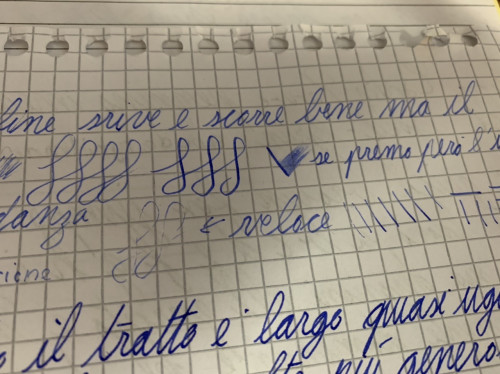 fine scrive e scorre bene ma il
se premo però
danza ← veloce
il tratto è largo quasi
più